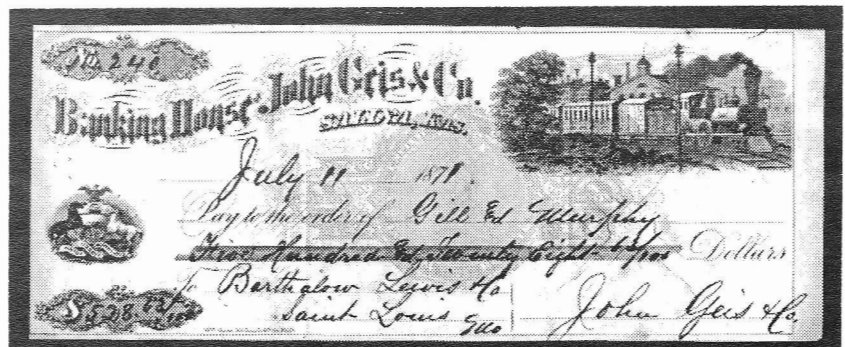 No. 240
Banking House John Geis & Co.
SALINA, KAS.
July 11 1878.
Pay to the order of Gill Ed Murphy
Five Hundred Ed Twenty Eight Dollars
To Barthalow Lewis & Co
Saint Louis
John Geis & Co.
$528